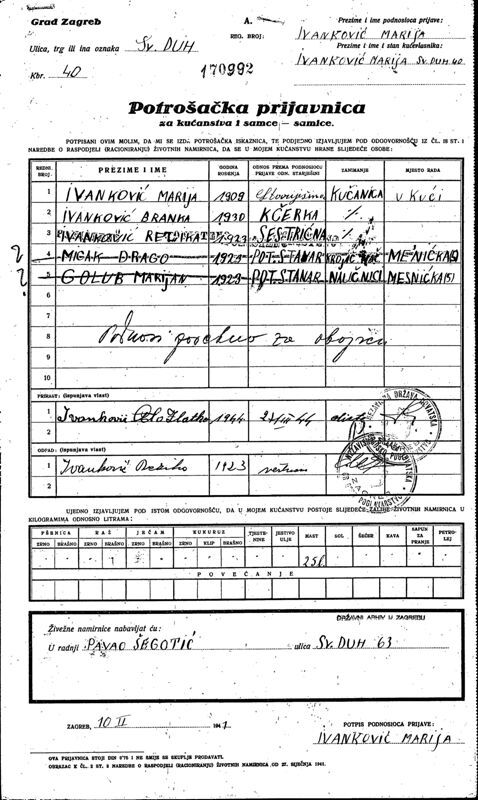 Grad Zagreb
A.
REG. BROJ:
170992
Prezime i ime podnosioca prijave:
IVANKOVIĆ MARIJA
Prezime i ime i stan kućevlasnika:
IVANKOVIĆ MARIJA SV. DUH 40
Ulica, trg ili ina oznaka SV. DUH
Kbr. 40
Potrošačka prijavnica
za kućanstva i samce — samice.
POTPISANI OVIM MOLIM, DA MI SE IZDA POTROŠAČKA ISKAZNICA, TE PODJEDNO IZJAVLJUJEM POD ODGOVORNOŠĆU IZ ČL. 18 ST. 1
NAREDBE O RASPODJELI (RACIONIRANJU) ŽIVOTNIH NAMIRNICA, DA SE U MOJEM KUĆANSTVU HRANE SLIJEDEĆE OSOBE:
REDNI BROJ: PREZIME I IME GODINA ROĐENJA ODNOS PREMA PODNOSIOCU PRIJAVE ODN. STARJEŠINI ZANIMANJE MJESTO RADA
1 IVANKOVIĆ MARIJA 1909 KUĆANICA U KUĆI
2 IVANKOVIĆ BRANKA 1930 KĆERKA ⁒
3 IVANKOVIĆ 1923 SESTRIČNA ⁒
4 MIGAK DRAGO 1929 POTSTANAR MESNIČKA
5 GOLUB MARIJAN 1929 POTSTANAR NAUČNIK MESNIČKA
6
7
8 za obojicu
9
10
PRIRAST: (ispunjava vlast)
1 Ivanković Zlatko 1944 dijete
2
OTPAD: (ispunjava vlast)
1 Ivanković 1923
2
UJEDNO IZJAVLJUJEM POD ISTOM ODGOVORNOŠĆU, DA U MOJEM KUĆANSTVU POSTOJE SLIJEDEĆE ZALIHE ŽIVOTNIH NAMIRNICA U
KILOGRAMIMA ODNOSNO LITRAMA:
PŠENICA RAŽ JEČAM KUKURUZ TJESTENINE JESTIVO ULJE MAST SOL ŠEĆER KAVA SAPUN ZA PRANJE PETROLEJ
ZRNO BRAŠNO ZRNO BRAŠNO ZRNO BRAŠNO ZRNO KLIP BRAŠNO
POVEĆANJE
DRŽAVNI ARHIV U ZAGREBU
Živežne namirnice nabavljat ću:
U radnji PAVAO ŠEGOTIĆ ulica SV. DUH 63
ZAGREB, 10 II 1941
POTPIS PODNOSIOCA PRIJAVE:
IVANKOVIĆ MARIJA
OVA PRIJAVNICA STOJI DIN 0'75 I NE SMIJE SE SKUPLJE PRODAVATI.
OBRAZAC K ČL. 2 ST. 2 NAREDBE O RASPODJELI (RACIONIRANJU) ŽIVOTNIH NAMIRNICA OD 27. SIJEČNJA 1941.